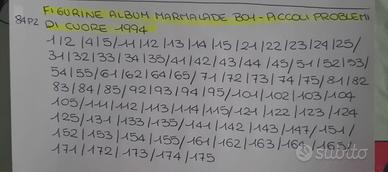 FIGURINE ALBUM MARMALADE BOY - PICCOLI PROBLEMI
84P2
DI CUORE 1994
1/2/4/5/11/12/13/14/15/21/22/23/24/25/
31/32/33/34/35/41/42/43/44/45/51/52/53/
54/55/61/62/64/65/71/72/73/74/75/81/82
83/84/85/92/93/94/95/101/102/103/104
105/111/112/113/114/115/121/122/123/124
125/131/133/135/141/142/143/147/151/
152/153/154/155/161/162/163/164/165/
171/172/173/174/175
subito